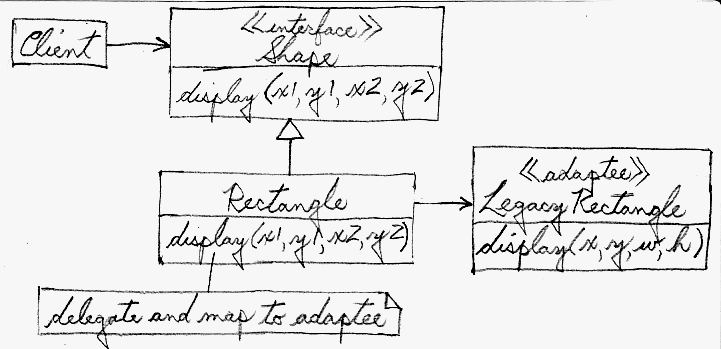 Client
<<interface>>
Shape
display(x1, y1, x2, y2)
Rectangle
display(x1, y1, x2, y2)
<<adaptee>>
Legacy Rectangle
display(x, y, w, h)
delegate and map to adaptee